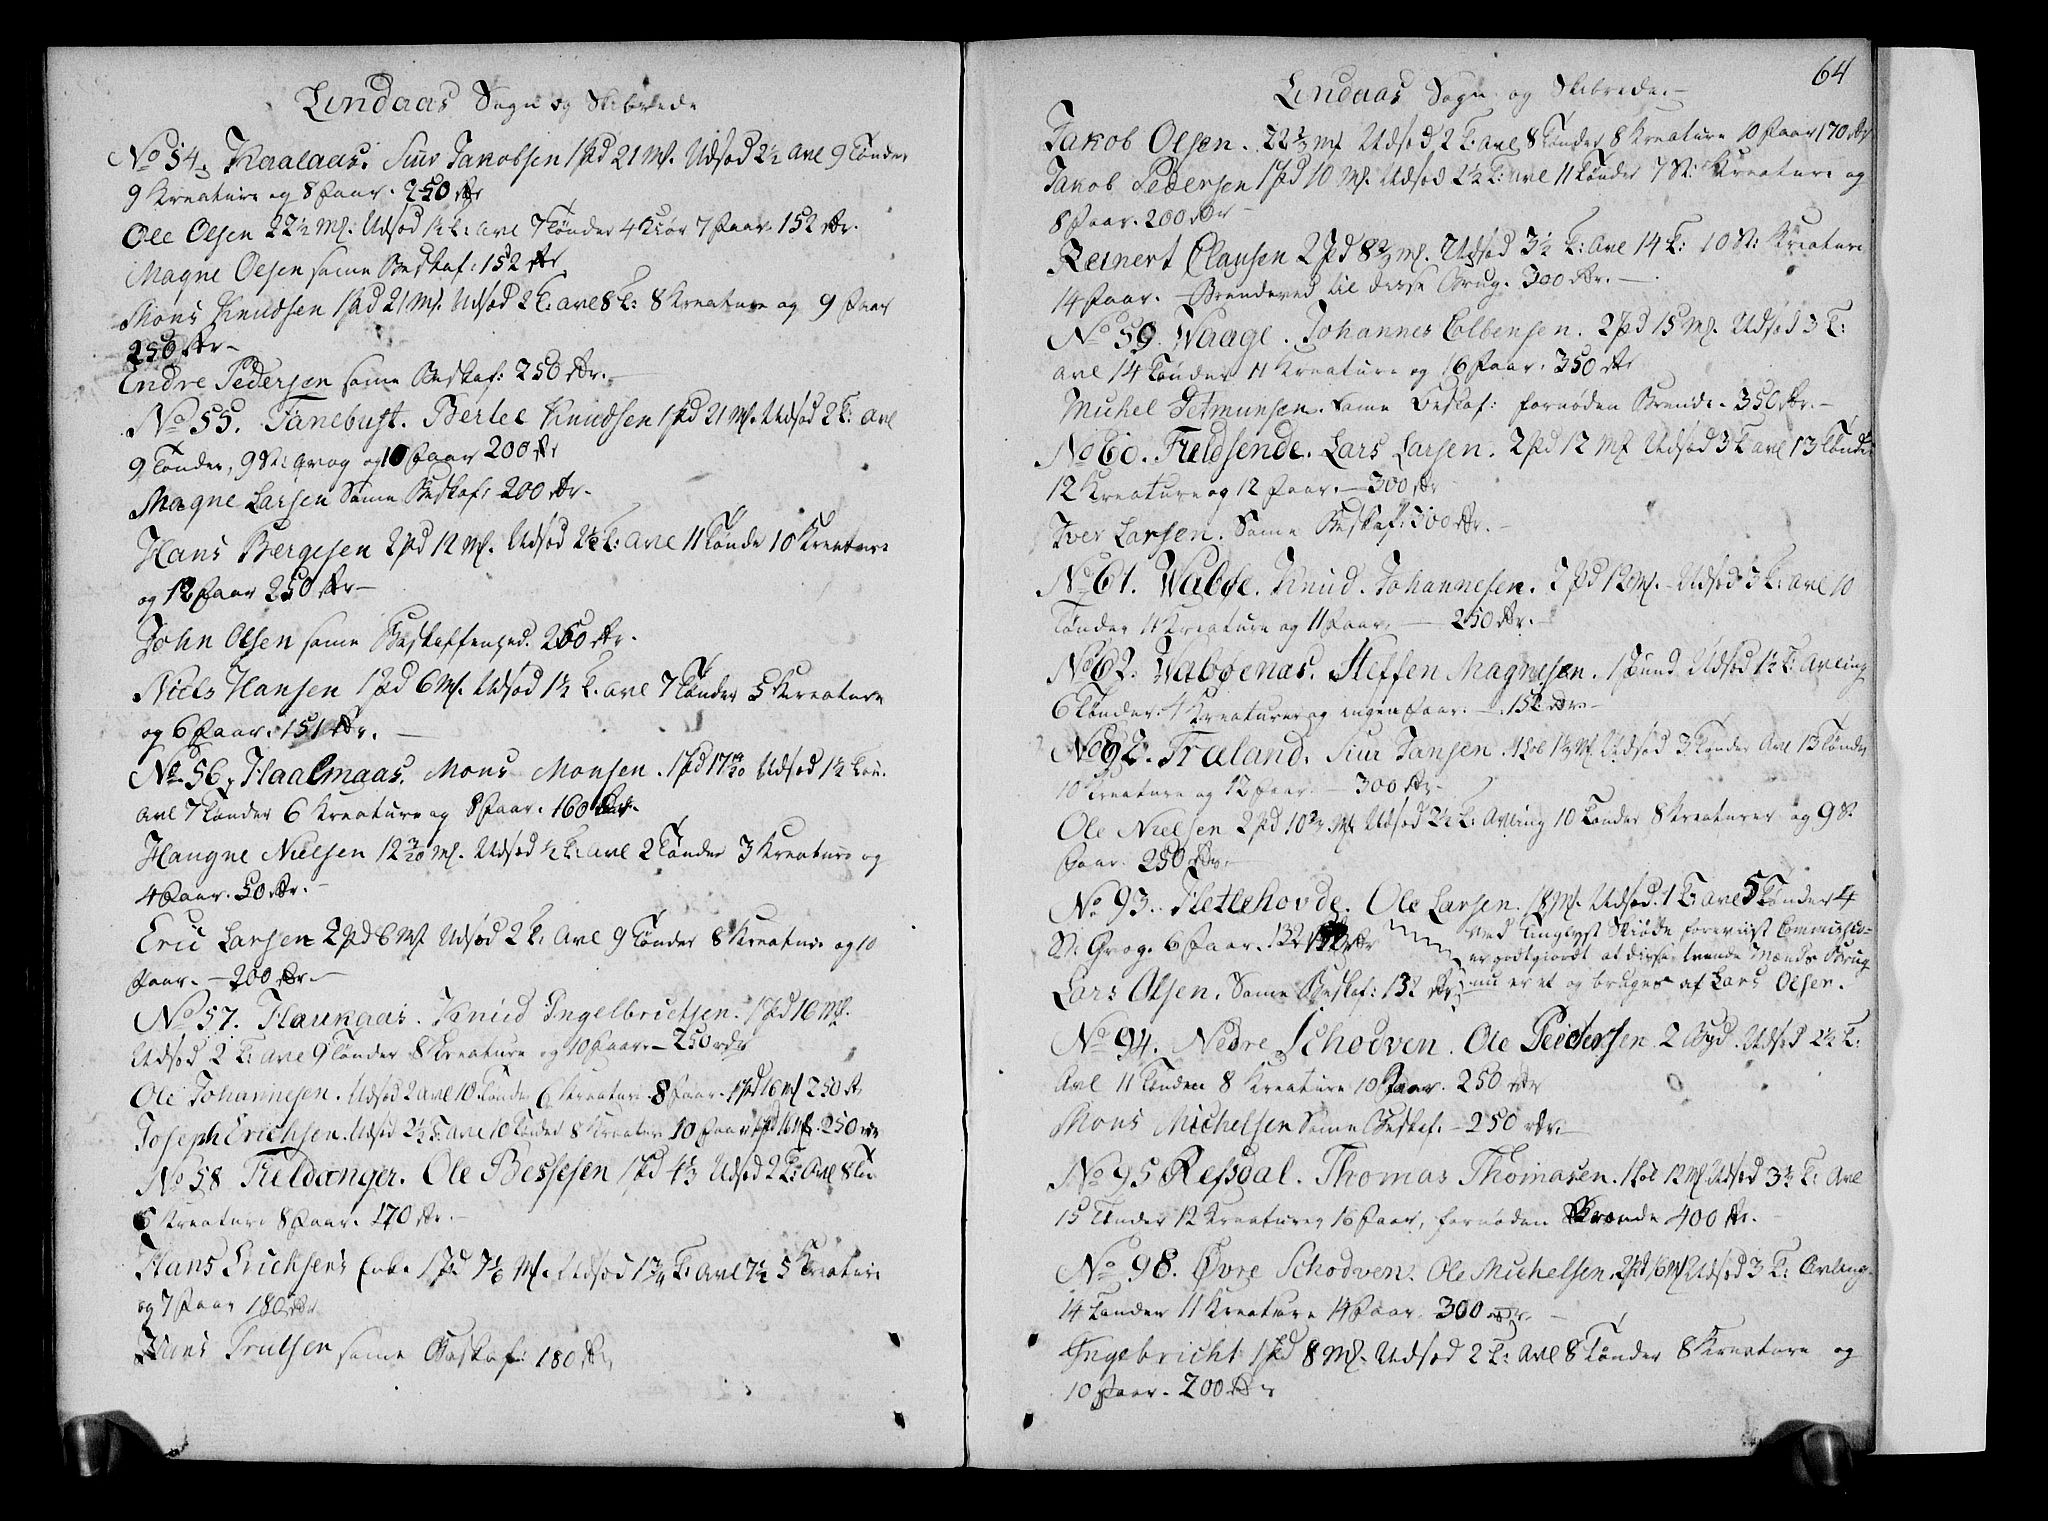 Lindaas Sogn og Skibrede
No 54. Kaalaas. Siur Jakobsen 1 Pd 21 M. Udsød 2½ avl 9 Tønder
9 Kreature og 8 Faar. 250 Rdr
Ole Olsen 22½ M. Udsød 1½ T: avl 7 Tønder 4 Kiør 7 Faar. 152 Rdr.
Magne Olsen same Beskaf: 152 Rdr
Mons Knudsen 1 Pd 21 M. Udsød 2 T: avl 8 T: 8 Kreature og 9 Faar
250 Rdr
Endre Pedersen same Beskaf: 250 Rdr.
No 55. Fanebust. Bertel Knudsen 1 Pd 21 M. Udsød 2 T: avl
9 Tønder, 9 St: og 10 Faar 200 Rdr
Magne Larsen Same Beskaf: 200 Rdr.
Hans Bergesen 2 Pd 12 M. Udsød 2½ T: avl 11 Tønde 10 Kreature
og 12 Faar 250 Rdr
John Olsen same Beskaffenhed. 250 Rdr.
Niels Hansen 1 Pd 6 M. Udsød 1½ T. avl 7 Tønder 5 Kreature
og 6 Faar. 151 Rdr.
No 56. Haalmaas. Mons Monsen. 1 Pd 17 Udsød 1½ Tøn.
avl 7 Tønder 6 Kreature og 8 Faar. 160 Rdr.
Haugne Nielsen 12 M. Udsød ½ T: avl 2 Tønder 3 Kreature og
4 Faar. 50 Rdr.
Eric Larsen 2 Pd 6 M. Udsød 2 T: Avl 9 Tønder 8 Kreature og 10
Faar. 200 Rdr.
No 57. Haukaas. Knud Ingelbrictsen. 1 Pd 16 M.
Udsød 2 T: avl 9 Tønder 8 Creature og 10 Faar. 250 rdr
Ole Johannesen. Udsød 2 avl 10 Tønder 6 Kreature 8 Faar. 1 Pd 16 M 250 Rdr
Joseph Erichsen. Udsød 2½ T. avl 10 Tønder 8 Kreature 10 Faar 1 Pd 16 M. 250 rdr
No 58 Fieldanger. Ole Bessesen 1 Pd 4½ Udsød 2 T: Avl 8 Tø:
6 Kreature 8 Faar. 170 Rdr.
Hans Erichsens Enke 1 Pd 7⅙ M. Udsød 1¾ T: avl 7½ 5 Kreature
og 7 Faar 180 Rdr
Trulsen same Beskaf: 180 Rdr,
64
Lindaas Sogn og Skibrede.
Jakob Olsen. 22½ M Udsød 2 T: avl 8 Tønder 8 Kreature 10 Faar 170 Rdr
Jakob Pedersen 1 Pd 10 M. Udsød 2½ T: avl 11 Tønder 7 St: Kreature og
8 Faar. 200 Rdr
Reinert Clausen 2 Pd 8 M. Udsød 3½ T: Avl 14 T: 10 St: Kreature
14 Faar. Brendeved til deres Brug. 300 Rdr.
No 59. Waage. Johannes Colbensen. 2 Pd 15 M. Udsød 3 T:
avl 14 Tønder 11 Kreature og 16 Faar. 350 Rdr
Michel Setmunsen. Same Beskaf: fornøden Brende. 350 Rdr.
No 60. Fieldsende. Lars Larsen. 2 Pd 12 M Udsød 3 T avl 13 Tønder
12 Kreature og 12 Faar. 300 Rdr
Iver Larsen. Same Beskaf: 300 Rdr.
No 61. Waløe. Knud Johannesen. 2 Pd 12 M. Udsød 3 T: avl 10
Tønder 11 Kreature og 11 Faar. 250 Rdr.
No 62. Waløenas. Steffen Magnesen. 1 Pund Udsød 1½ T: Avling
6 Tønder. 4 Kreaturer og ingen Faar. 152 Rdr
No 92. Fræland. Siur Jansen. 1½ M Udsød 3 Tønder Avl 13 Tønder
10 Kreature og 12 Faar. 300 Rdr.
Ole Nielsen 2 Pd 10 M. Udsød 2½ T: Avling 10 Tønder 8 Kreaturer og 9 St
Faar. 250 Rdr.
No 93. Fletlehovde. Ole Larsen. 18 M. Udsød 1 T: avl 5 Tønder 4
St: 6 Faar. 132 Rdr
Ved Tinglyst Skiøde foreviist Commissio-
er godtgiordt at disse tvende Mænds Brug
Lars Olsen. Same Beskaf: 132 Rdr nu er et og bruges af Lars Olsen.
No 94. Nedre Schodven. Ole Peidersen 2 Udsød 2½ T:
Avl 11 Tønder 8 Kreature 10 Faar. 250 Rdr
Mons Michelsen Same Beskaf. 250 rdr.
No 95 Refsdal. Thomas Thomasen. 12 M. Udsød 3½ T: Avl
15 Tønder 12 Kreature 16 Faar, fornøden Brende 400 Rdr.
No 98. Øvre Schodven. Ole Michelsen. 2 Pd 16 M Udsød 3 T: Avling
14 Tønder 11 Kreature 14 Faar. 300 rdr.
Ingebricht 1 Pd 8 M. Udsød 2 T: Avl 8 Tønder 8 Kreature og
10 Faar. 200 Rdr